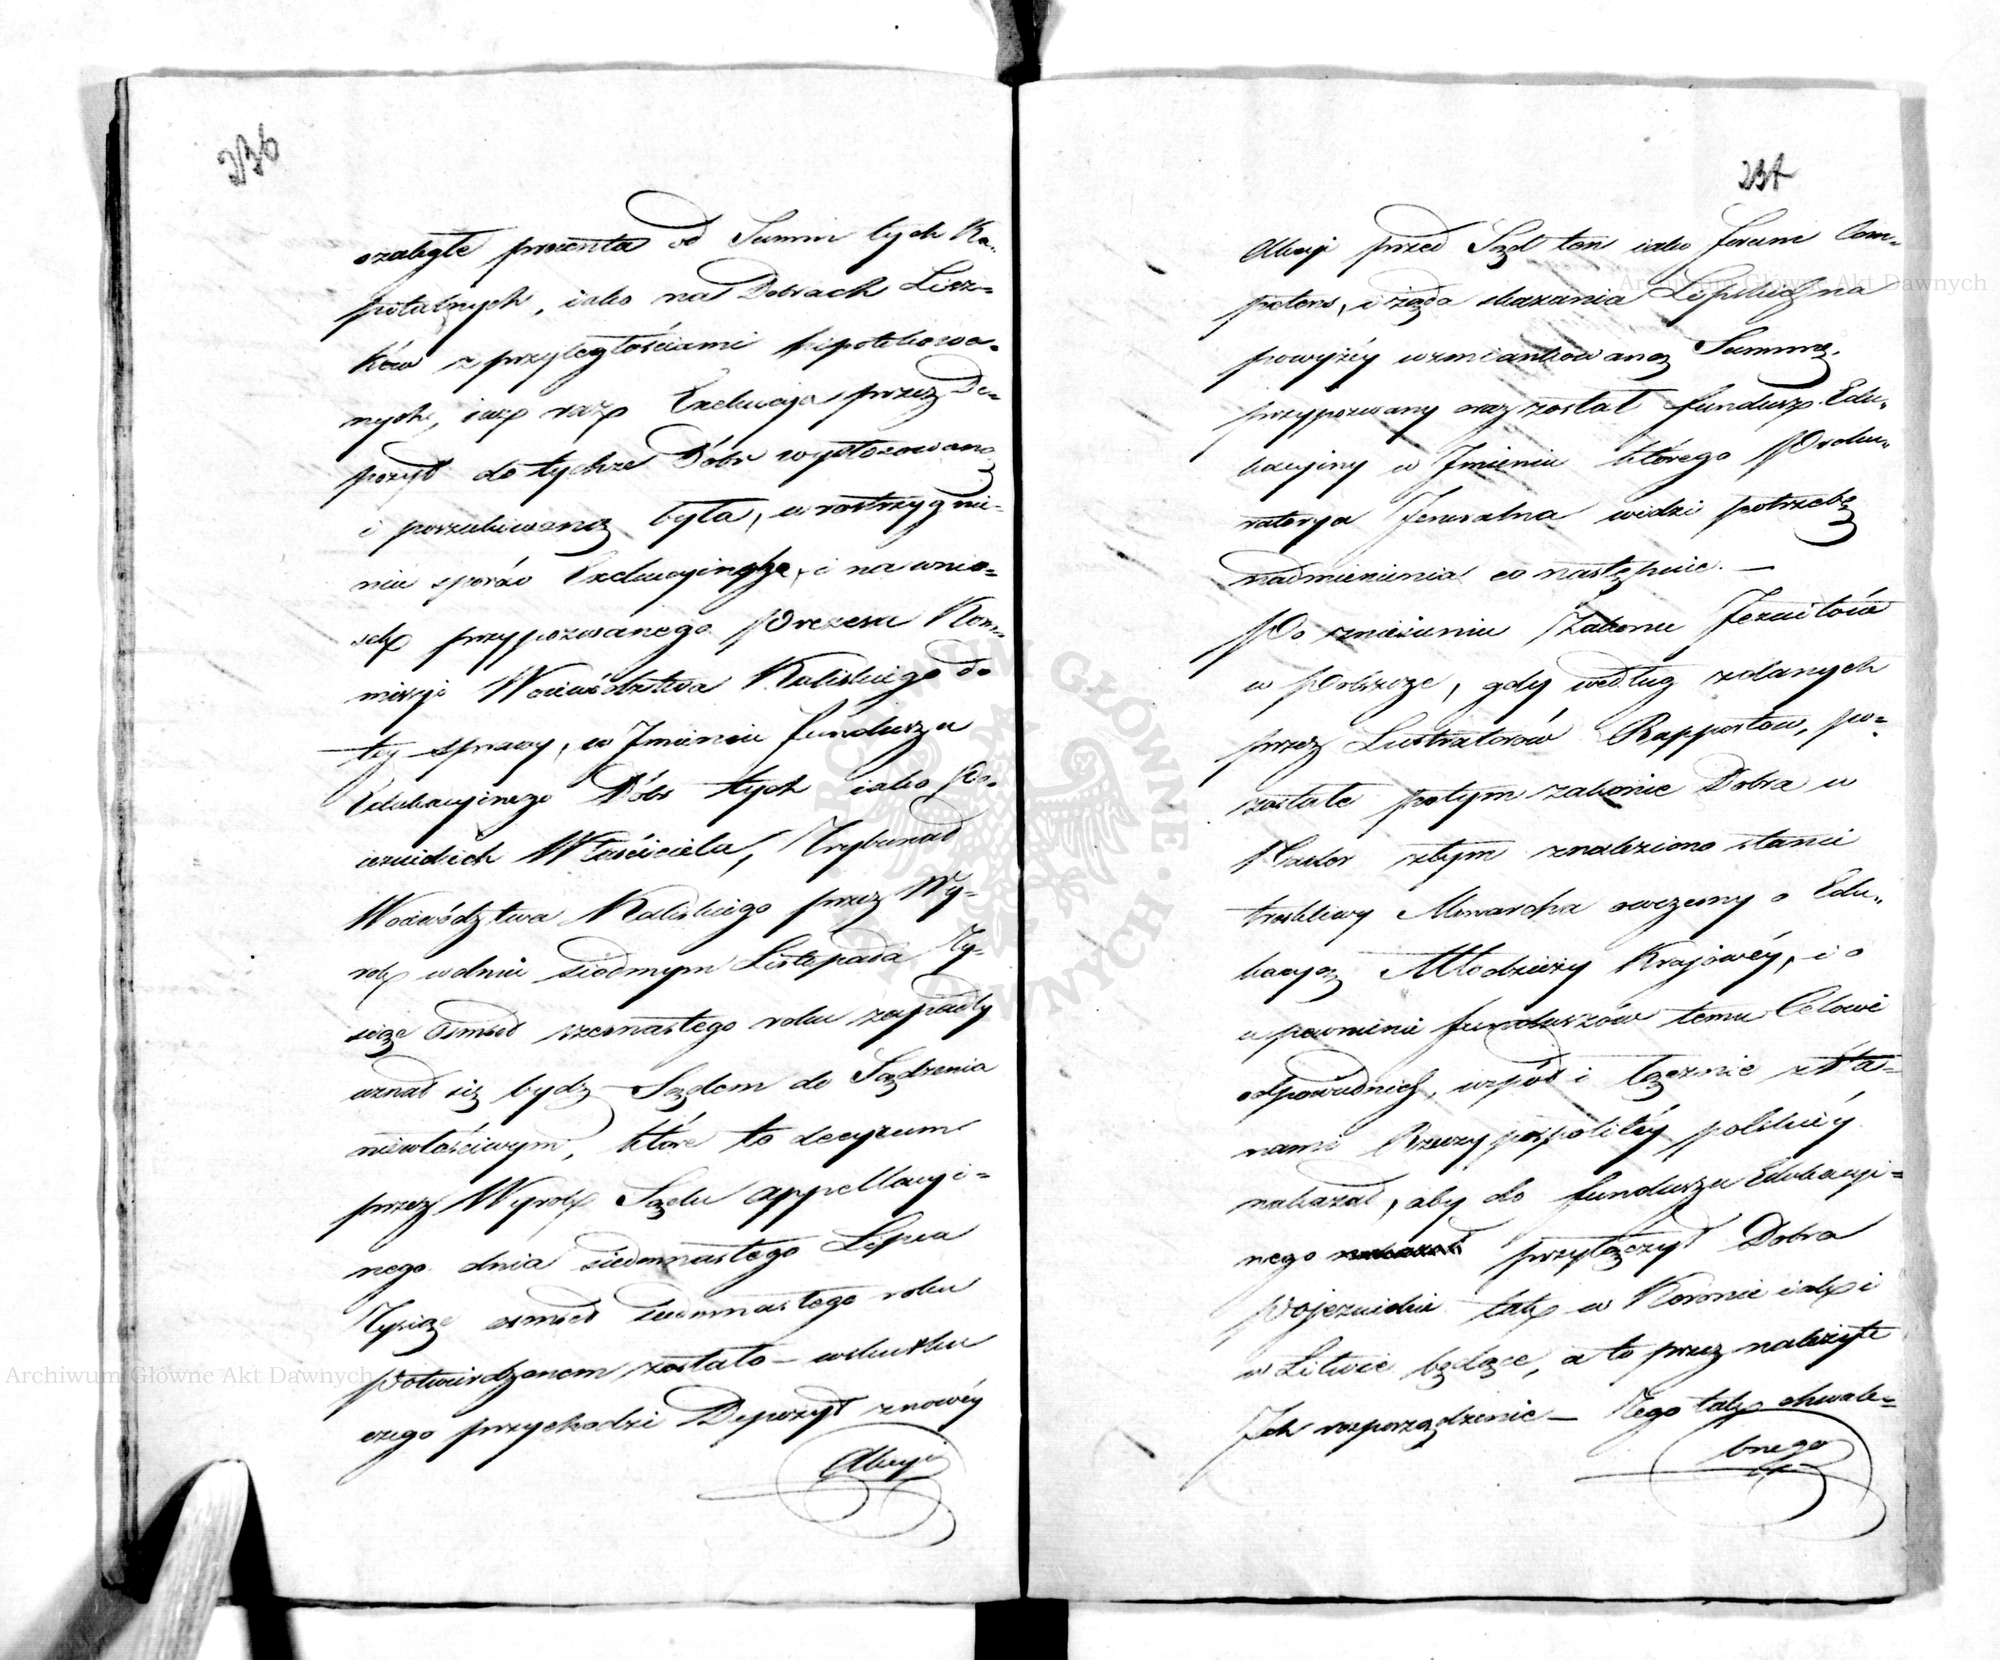 236
ozaległe procenta od Summ tych Ka-
pitalnych, iako na Dobrach Lisz-
ków z przyległościami hipotekowa-
nych, iuż raz Exekucya przez De-
pozyt do tychże Dóbr wystosowaną
i poszukiwaną była, w rostrzygnie-
niu sporów Exekucyinych, i na wnio-
sek przypozwanego Prezesa Kom-
missyi Woiewództwa Kaliskiego do
tey sprawy, w Imieniu funduszu
Edukacyinego Dóbr tych iako Po-
iezuickich Właściciela, Trybunał
Woiewództwa Kaliskiego przez Wy-
rok w dniu siódmym Listopada Ty-
siąc ośmset szesnastego roku zapadły
uznał się bydź Sądem do Sądzenia
niewłaściwym, które to decyzum
przez Wyrok Sądu appellacyi-
nego dnia siedmnastego Lipca
Tysiąc ośmset siedmnastego roku
potwierdzonem zostało – wskutku
czego przychodzi Depozyt z nowéy
Akcyi
237
Akcyi przed Sąd ten iako forum Com-
petens, i żąda skazania
powyżéy wzmiankowaną Summę.
przypozwany oraz został fundusz Edu-
kacyiny w Imieniu którego Proku-
ratorya Jeneralna widzi potrzebę
nadmienienia co następuie. –
Po zniesieniu Zakonu Jezuitów
w Polszcze, gdy według zdanych
przez Lustratorów Rapportów, po-
zostałe po tym zakonie Dobra w
złym znaleziono stanie
troskliwy Monarcha oweczesny o Edu-
kacyą Młodzieży Krajowéy, i o
upewnienie funduszów temu Celowi
odpowiednich, wspól i łącznie z Sta-
nami Rzeczypospolitéy polskiéy
nakazał, aby do funduszu Edukacyi-
nego przyłączył Dobra
Pojezuickie tak w Koronie iak i
w Litwie będące, a to przez należyte
Ich rozporządzenie – Tego tak chwale-
bnego